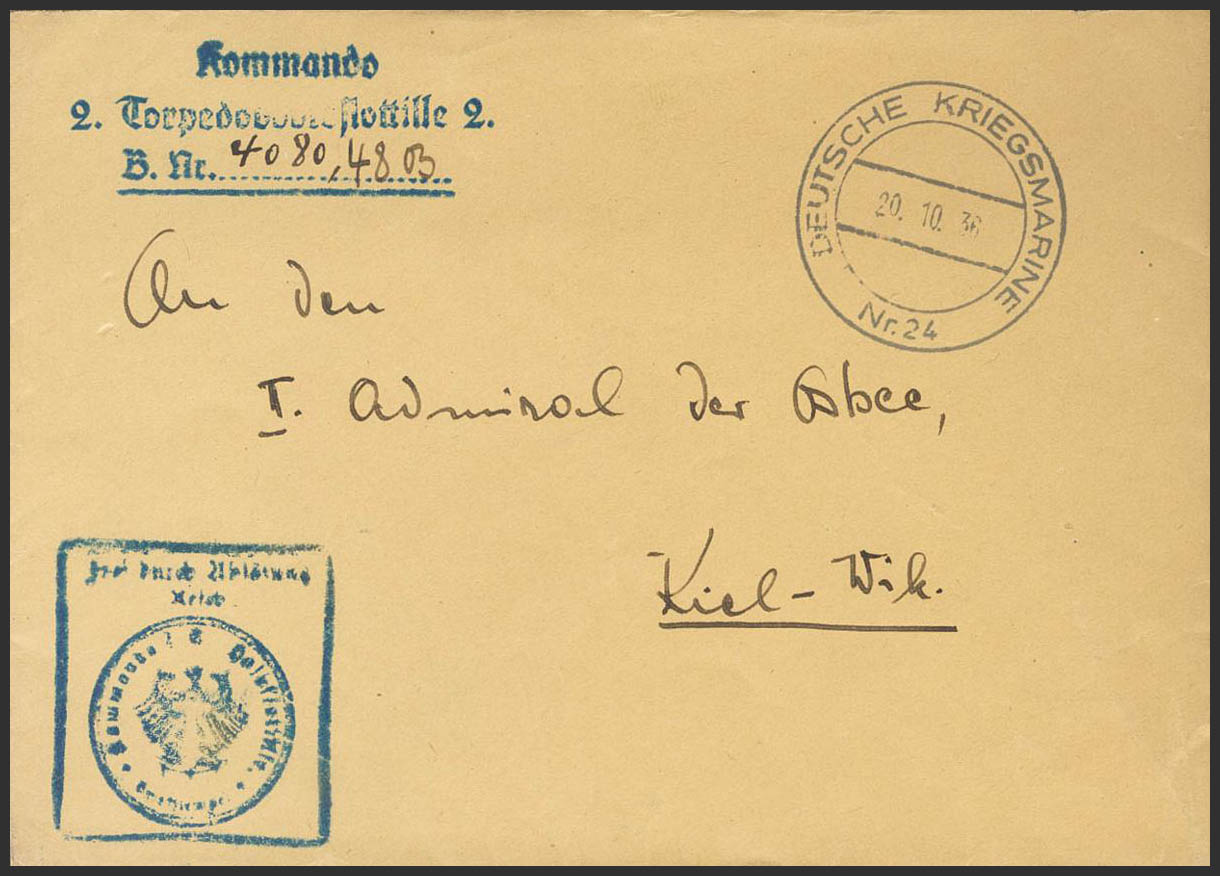 Kommando
2. Torpedobootsflottille 2.
B. Nr. 4080,48 B
DEUTSCHE KRIEGSMARINE
20. 10. 36
Nr. 24
An den
I. Admiral der Ostsee,
Kiel-Wik.
Frei durch Ablösung
Reich
Kommando Halbflottille